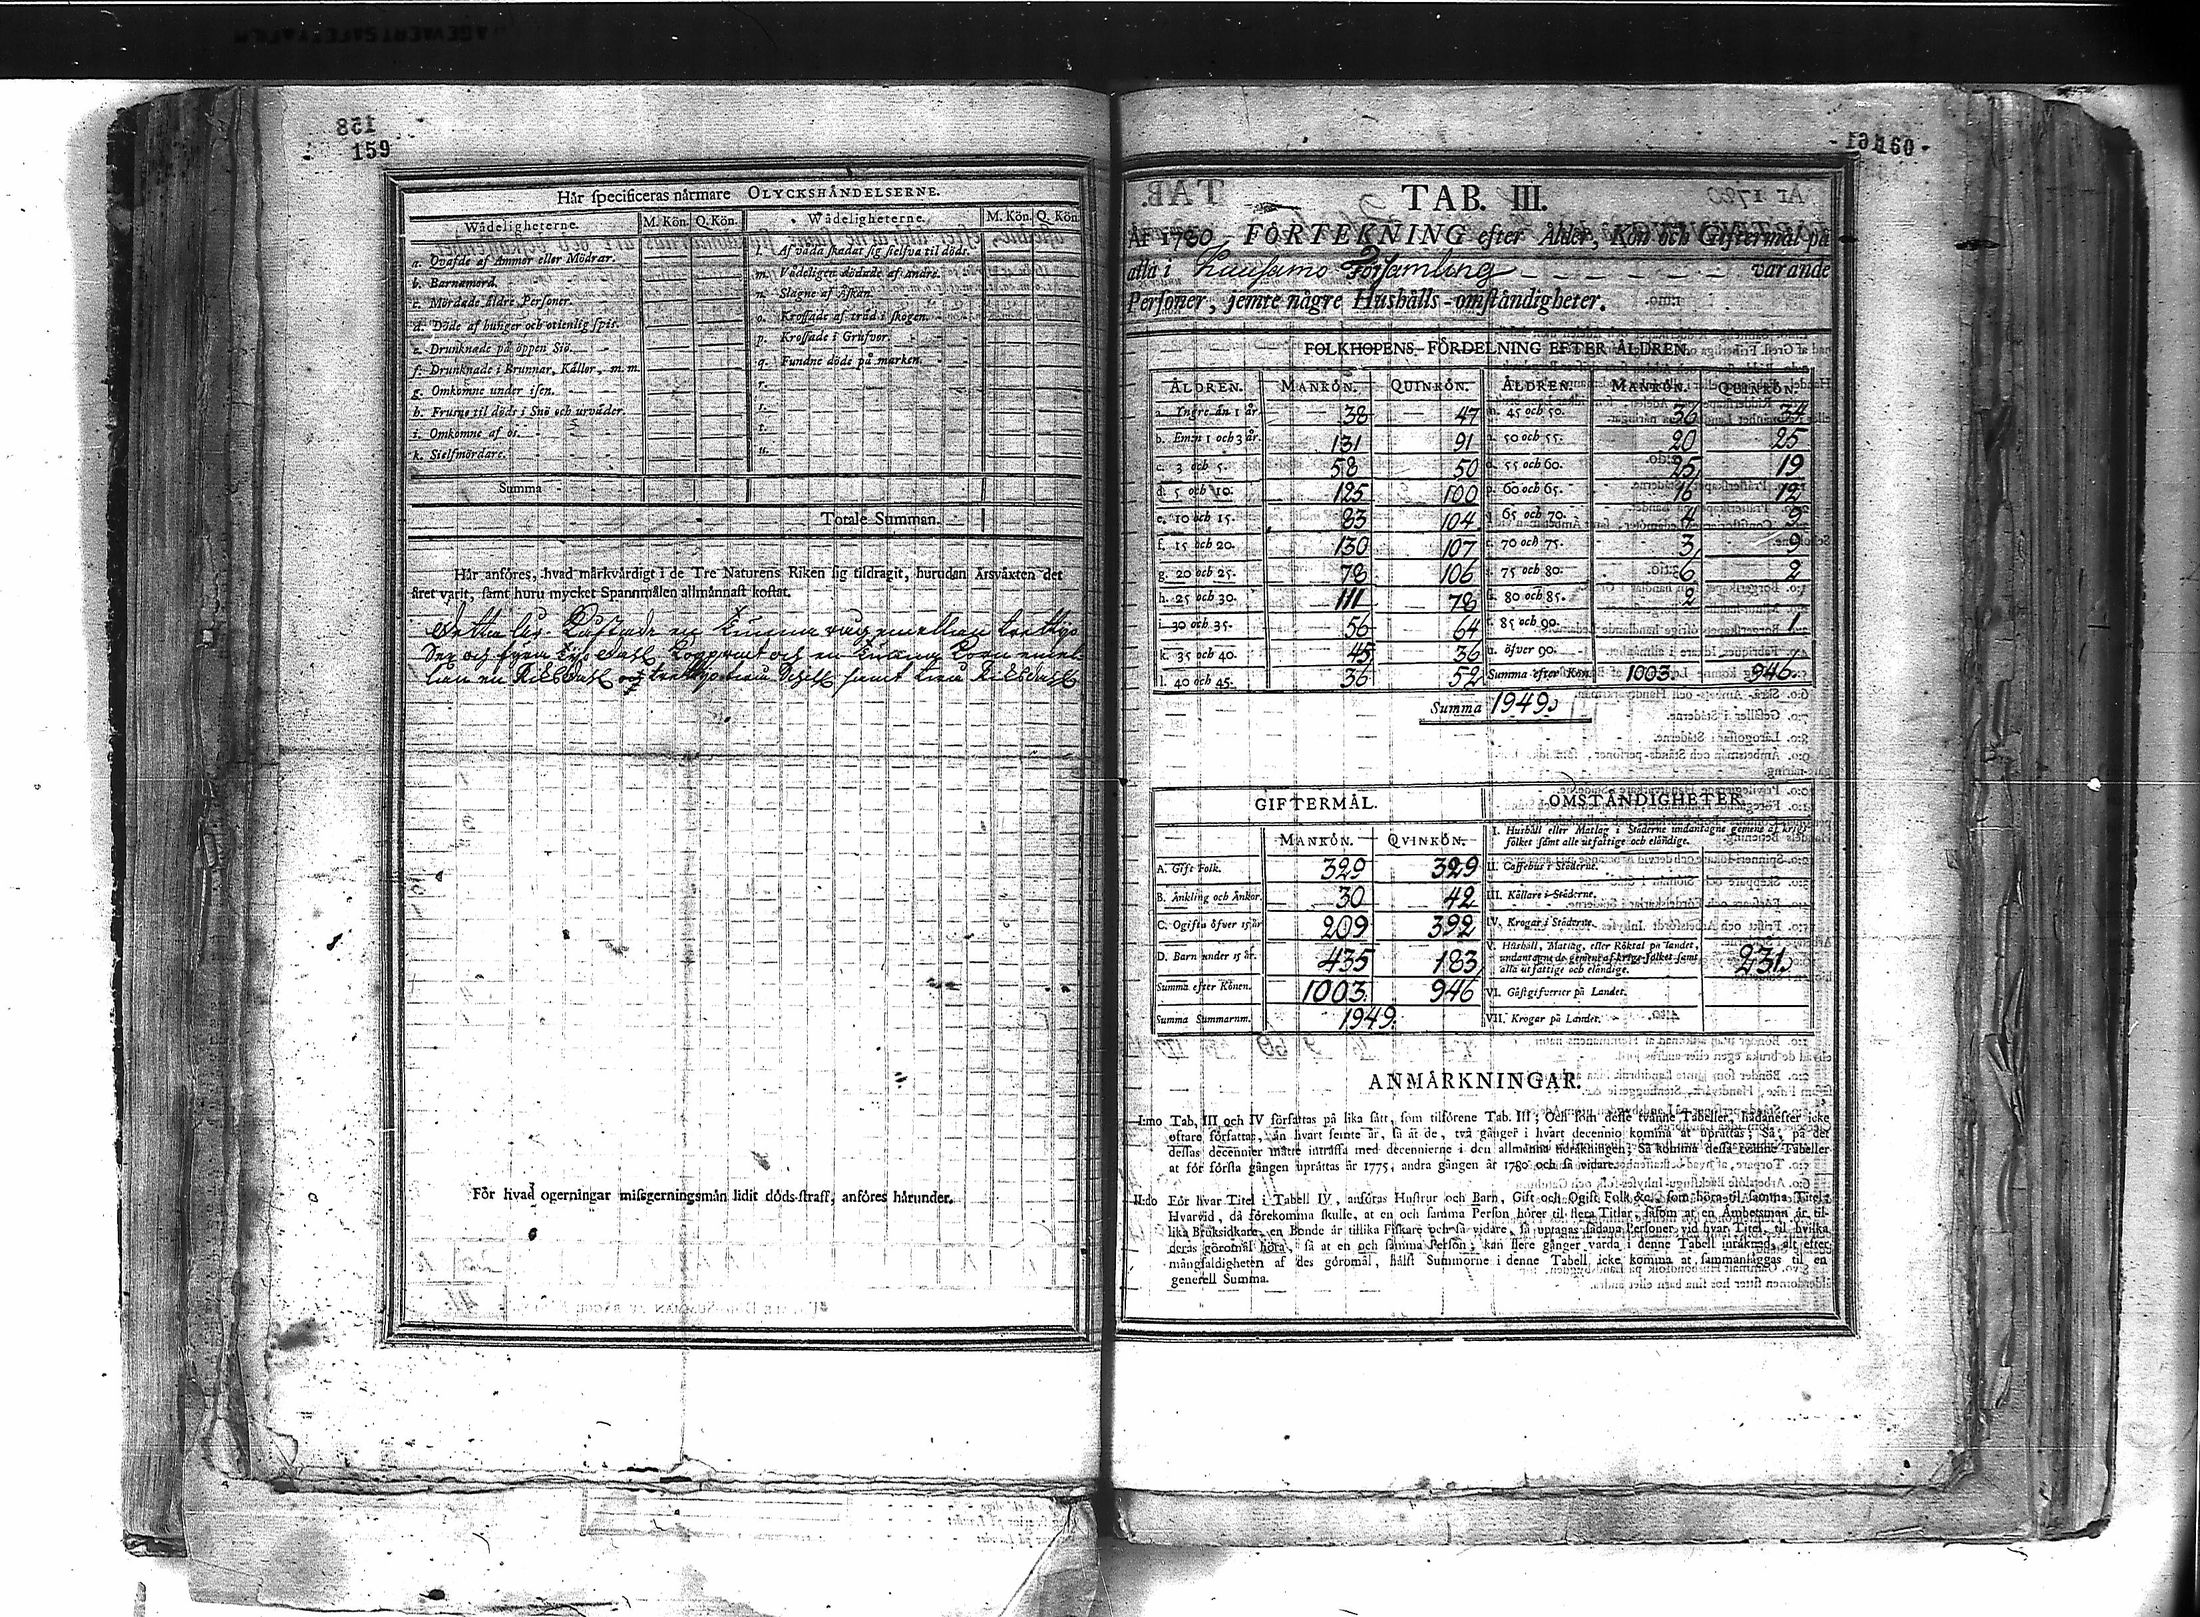 159
Hår specificeras nårmare OLYCKSHÅNDELSERNE.
Wådeligheterne. M. Kön. Q. Kön. Wådeligheterne. M. Kön. Q. Kön.
a. Qvafde af Ammor eller Mödrar.
b. Barnamord.
c. Mördade äldre Personer.
d. Döde af hunger och otienlig spis.
e. Drunknade på öppen Siö.
f. Drunknade i Brunnar, Källor, m.m.
g. Omkomne under isen.
h. Frusne til döds i Snö och urväder.
i. Omkomne af os.
k. Sielfmördare.
l. Af våda skadat sig sielfva til döds.
m. Vådeligen dödade af andra.
n. Slagne af Åskan.
o. Krossade af träd i skogen.
p. Krossade i Grufvor.
q. Fundne döde på marken.
r.
s.
t.
u.
Summa
Totale Summan.
Hår anföres, hvad mårkvårdigt i de Tre Naturens Riken sig tildragit, hurudan Årsvåxten det
året varit, samt huru mycket Spannmålen allmånnast kostat.
Detta åhr Kåstade en Tunna råg emellan trettijo
För hvad ogerningar missgerningsmån lidit döds-straff, anföres hårunder.
160
TAB. III.
År 1780 FÖRTEKNING efter Ålder, Kön och Giftermål på
alla i Kuusamo Församling varande
Personer, jemte några Hushålls-omständigheter.
FOLKHOPENS FÖRDELNING EFTER ÅLDREN.
ÅLDREN. MANKÖN. QUINKÖN. ÅLDREN. MANKÖN. QUINKÖN.
a. Yngre än 1 år. 38 47 m. 45 och 50. 36 34
b. Emn 1 och 3 år. 131 91 n. 50 och 55. 20 25
c. 3 och 5. 58 50 o. 55 och 60. 25 19
d. 5 och 10. 125 100 p. 60 och 65. 16 12
e. 10 och 15. 83 104 q. 65 och 70. 4 9
f. 15 och 20. 130 107 r. 70 och 75. 3 9
g. 20 och 25. 78 106 s. 75 och 80. 6 2
h. 25 och 30. 111 78 t. 80 och 85. 2
i. 30 och 35. 56 64 85 och 90. 1
k. 35 och 40. 45 36 u. öfver 90.
l. 40 och 45. 36 52 Summa efter Kön. 1003. 946.
Summa 1949.
GIFTERMÅL. OMSTÅNDIGHETER.
MANKÖN. QVINKÖN.
A. Gift Folk. 329 329
B. Änkling och Änkor. 30 42
C. Ogifta öfver 15 år 209 392
D. Barn under 15 år. 435 183
Summa efter Könen. 1003. 946
Summa Summarum. 1949.
I. Hushåll eller Matlag i Städerne undantagne gemene af krigs-
folket samt alle utfattige och eländige.
II. Caffehus i Städerne.
III. Källare i Städerne.
IV. Krogar i Städerne.
V. Hushåll, Matlag, eller Röktal på landet,
undantagne de gemene af krigs-folket samt
alla utfattige och eländige. 231.
VI. Gästgifverier på Landet.
VII. Krogar på Landet.
ANMÅRKNINGAR.
I:mo Tab. III och IV författas på lika sått, som tilförene Tab. III; Och som desse tvånne Tabeller, hådanefter icke
oftare författas, ån hvart femte år, så åt de, två gånger i hvart decennio komma at upråttas; Så, på det
dessas decennier måtte intråffa med decennierne i den allmånna tidråkningen; Så komma dessa tvånne Tabeller
at för första gången upråttas år 1775, andra gången år 1780 och så vidare.
II:do För hvar Titel i Tabell IV, anföras Hustrur och Barn, Gift och Ogift Folk &c. som höra til samma Titel;
Hvarvid, då förekomma skulle, at en och samma Person hörer til flera Titlar, såsom at en Åmbetsman år til-
lika Bruksidkare, en Bonde år tillika Fiskare och så vidare, så uptagas sådana Personer vid hvar Titel, til hvilka
deras göromål höra, så at en och samma Person, kan flere gånger varda i denne Tabell intåknad, alt efter
mångfaldigheten af des göromål, hålst Summorne i denne Tabell icke komma at sammanläggas til en
generell Summa.